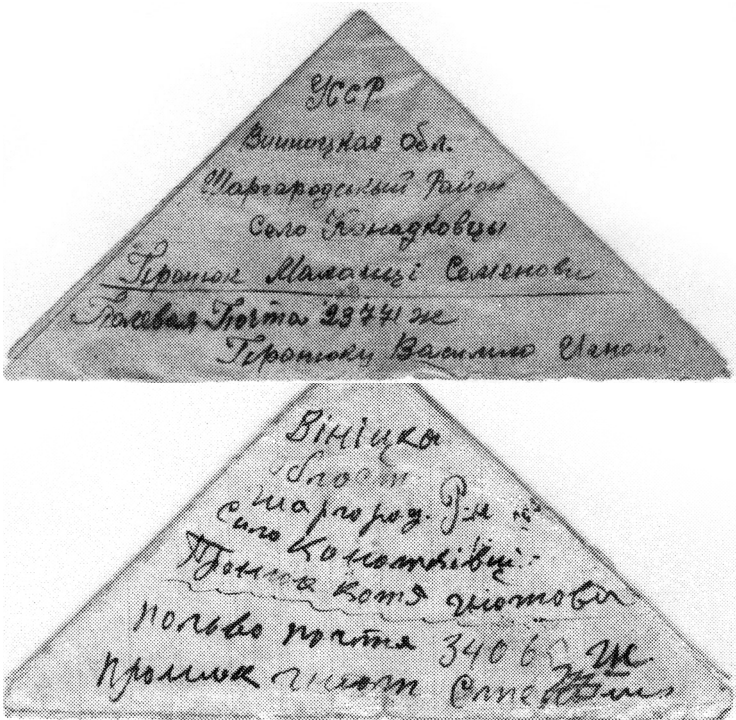 УССР
Винницкая обл.
Шаргородський Район
Село Конадковцы
Пронюк Маланці Семенови
Полевая Почта 23771 ж
Пронюку Василию Игнат
Вініцка
област
Шаргород. Р-н
Село Конатківці
Пронюк Котя
Польво почтя 3406 Ж
Пронюк гнат